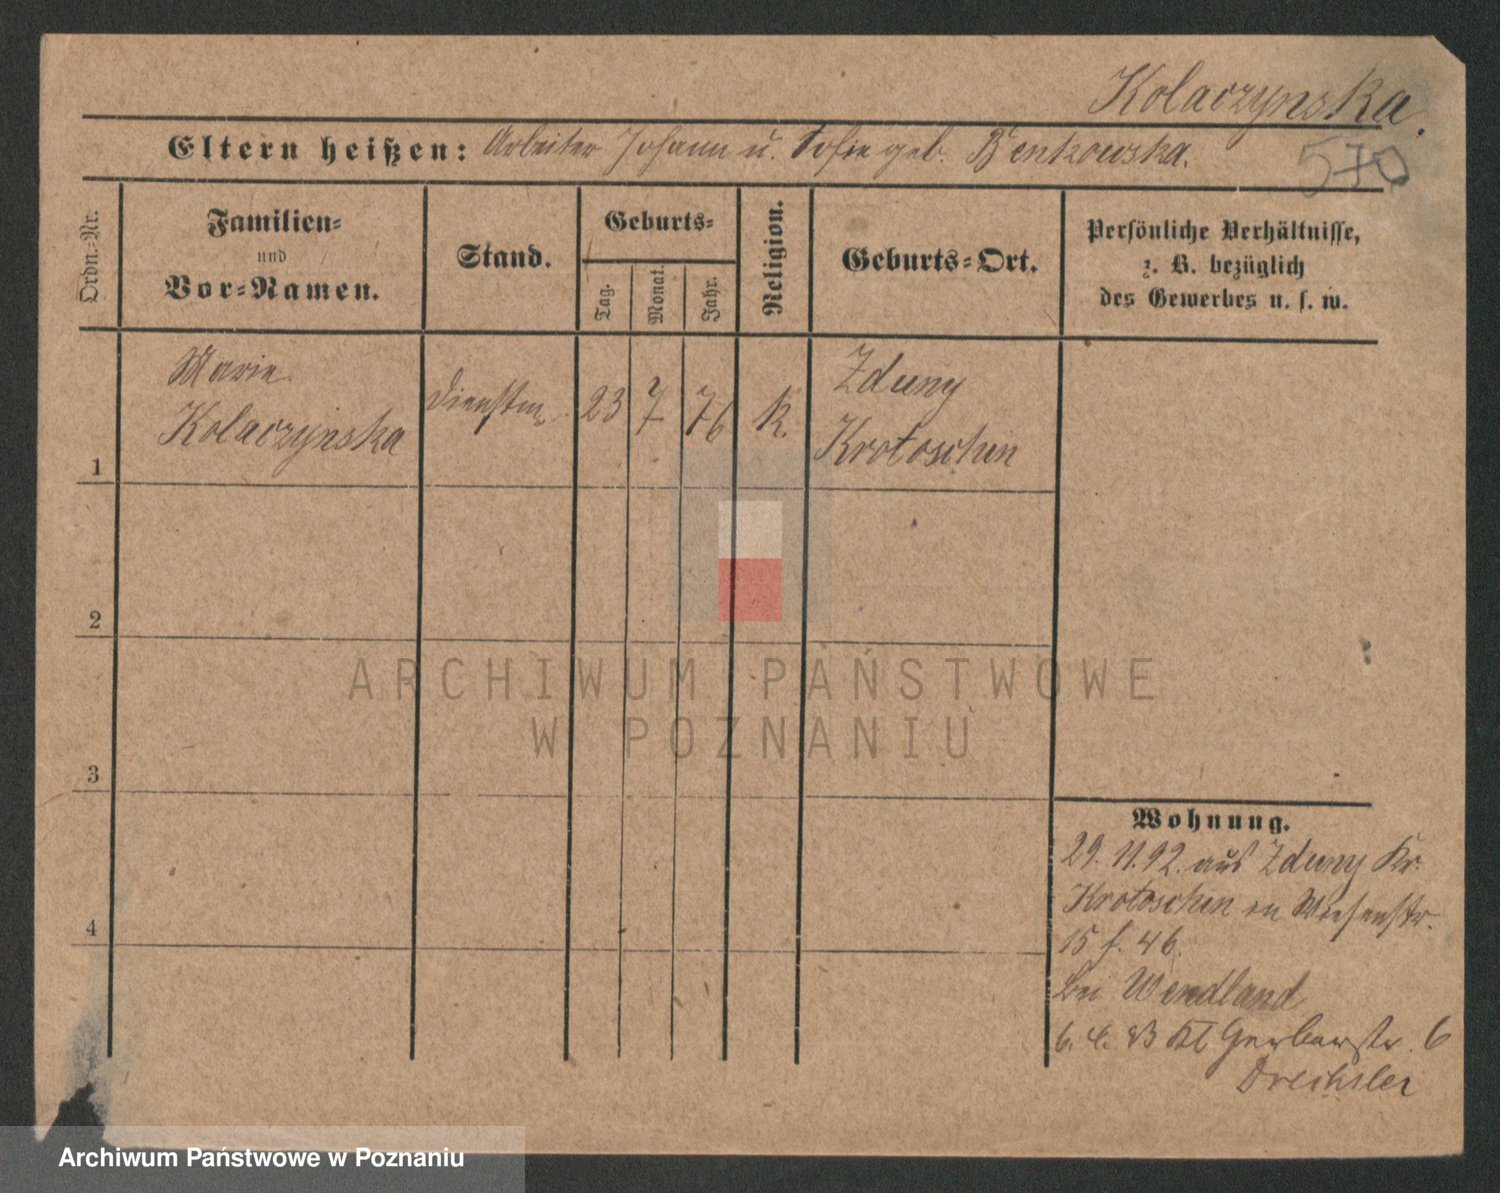 Kolaczynska.
570
Eltern heißen: Arbeiter Johann u. Sofie geb. Benkowska.
Ordn.-Nr.
Familien-
und
Vor-Namen.
Stand.
Geburts-
Tag.
Monat.
Jahr.
Religion.
Geburts-Ort.
Persönliche Verhältnisse,
z. B. bezüglich
des Gewerbes u. s. w.
1
Marie
Kolaczynska
Dienstm
23
7
76
K.
Zduny
Krotoschin
2
3
4
Wohnung.
29. 11. 92. aus Zduny Kr.
Krotoschin in Wiesenstr.
15
bei Wendland
Kl Gerberstr. 6
Drechsler
ARCHIWUM PAŃSTWOWE
W POZNANIU
Archiwum Państwowe w Poznaniu